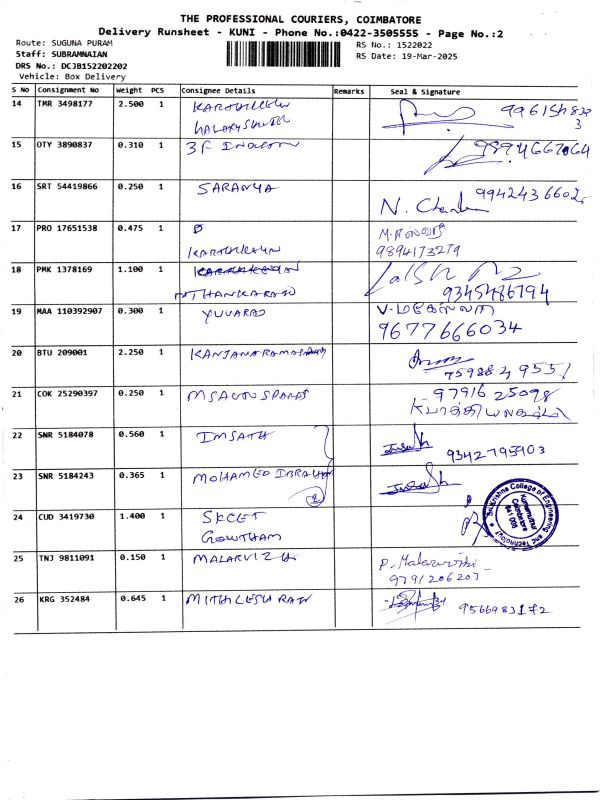 THE PROFESSIONAL COURIERS, COIMBATORE
Delivery Runsheet - KUNI - Phone No.:0422-3505555 - Page No.:2
Route: SUGUNA PURAM
Staff: SUBRAMNAIAN
DRS No.: DCJB152202202
Vehicle: Box Delivery
RS No.: 1522022
RS Date: 19-Mar-2025
S No Consignment No Weight PCS Consignee Details Remarks Seal & Signature
14 TMR 3498177 2.500 1
15 OTY 3890837 0.310 1 3F
16 SRT 54419866 0.250 1 SARANYA N. 9942436602
17 PRO 17651538 0.475 1 9894173279
18 PMK 1378169 1.100 1 9345486794
19 MAA 110392907 0.300 1 YUVARAJ 9677666034
20 BTU 209001 2.250 1
21 COK 25290397 0.250 1 97916 25098
22 SNR 5184078 0.560 1 IMSATH 9342795903
23 SNR 5184243 0.365 1 MOHAMED IBRAHIM
2
24 CUD 3419730 1.400 1 SKCET
GOWTHAM
Sri Krishna College of Engineering and Technology
Kuniamuthur
Coimbatore
641 008
25 TNJ 9811091 0.150 1 MALARVIZHI P. Malarvizhi
9791206207
26 KRG 352484 0.645 1 MITHLESH RAJ 9566983172